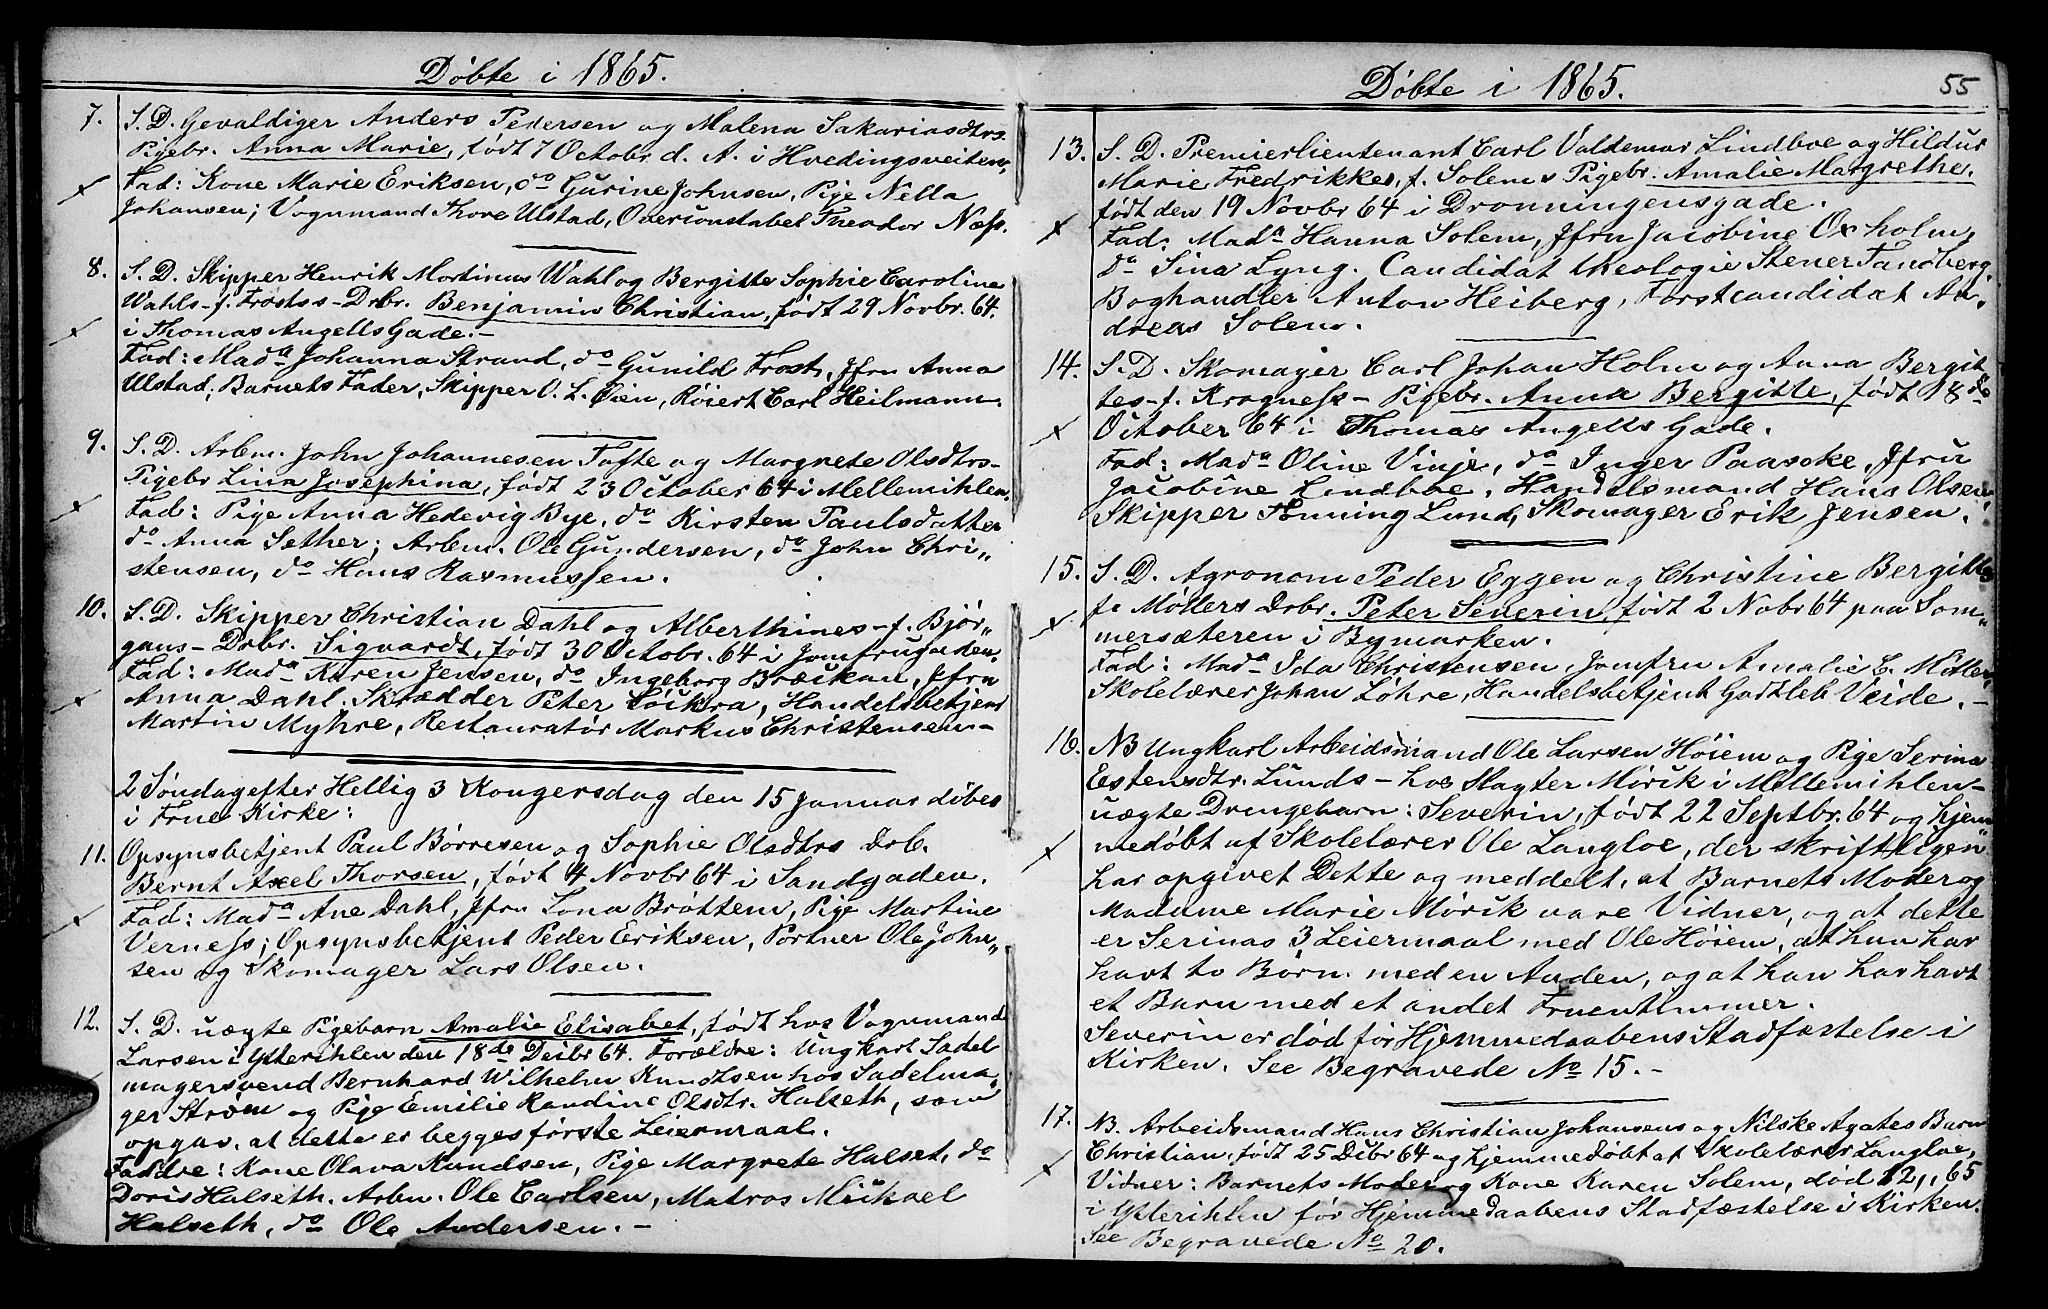 Døbte i 1865.
7. S. D. Gevaldiger Anders Pedersen og Malena Sakariasdtrs.
Pigebr. Anna Marie, født 7 Octobr. d. A. i Hvedingsveiten.
Fad: Kone Marie Eriksen, do Gurine Johnsen, Pige Nella
Johansen; Vognmand Thore Ulstad, Overconstabel Theodor Næss.
8. S. D. Skipper Henrik Martinus Wahl og Bergitte Sophie Caroline
Wahls - f. Frosts - Drbr. Benjamin Christian, født 29 Novbr. 64.
i Thomas Angells Gade. -
Fad: Mada Johanna Strand, do Gunild Frost, Jfru Anna
Ulstad; Barnets Fader, Skipper O. L. Øien, Røiert Carl Heilmann.
9. S. D. Arbm. John Johannesen Tofte og Margrete Olsdtrs -
Pigebr Lina Josephina, født 23 October 64 i Mellemihlen.
Fad: Pige Anna Hedevig Bye, do Kirsten Paulsdatter
do Anna Sether; Arbm. Ole Gundersen, do John Chri„
stensen, do Hans Rasmussen.
10. S. D. Skipper Christian Dahl og Alberthines - f. Bjør„
gans - Drbr. Sigvardt, født 30 Octobr. 64 i Jomfrugaden.
Fad: Mada Karen Jensen, do Ingeborg Bræikan, Jfru
Anna Dahl. Skrædder Peter Løikra, Handelsbetjent
Martin Myhre, Restauratør Markus Christensen -
2 Søndag efter Hellig 3 Kongersdag den 15 Januar døbes
i Frue Kirke:
11. Opsynsbetjent Paul Børresen og Sophie Olsdtrs Drb.
Bernt Axel Thorsen, født 4 Novbr 64 i Sandgaden.
Fad: Mada Ane Dahl, Jfru Lona Brøttem, Pige Martine
Verness; Opsynsbetjent Peder Eriksen, Portner Ole John„
sen og Skomager Lars Olsen.
12. S. D. uægte Pigebarn Amalie Elisabet, født hos Vognmand
Larsen i Ytterihlen den 18de Decbr 64. Forældre: Ungkarl Sadel
magersvend Bernhard Wilhelm Knudtsen hos Sadelma„
ger Strøm og Pige Emilie Randine Olsdtr. Halseth, som
opgav, at dette er begges første Leiermaal.
Faddre: Kone Olava Knudsen, Pige Margrete Halset, do
Doris Halseth. Arbm. Ole Carlsen, Matros Mickael
Halseth, do Ole Andersen. -
Døbte i 1865.
55
13. S. D. Premierlieutenant Carl Valdemar Lindboe og Hildur
Marie Fredrikkes, f. Solems Pigebr. Amalie Margrethe.
født den 19 Novbr 64 i Dronningensgade.
Fad: Mada Hanna Solem, Jfru Jacobine Oxholm,
do Sina Lyng. Candidat theologie Stener Tandberg,
Boghandler Anton Heiberg, Forstcandidat An„
dreas Solem.
14. S. D. Skomager Carl Johan Holm og Anna Bergit
tes - f. Kragness - Pigebr. Anna Bergitte, født 18de
October 64 i Thomas Angells Gade.
Fad: Mada Oline Vinje, do Inger Paascke, Jfru
Jacobine Lindboe, Handelsmand Hans Olsen,
Skipper Henning Lund, Skomager Erik Jensen.
15. S. D. Agronom Peder Eggen og Christine Bergittes
f. Møllers Drbr. Peter Severin, født 2 Nobr 64 paa Som„
mersæteren i Bymarken.
Fad: Mada Ida Christensen, Jomfru Amalie E. Møller,
Skolelærer Johan Løhre, Handelsbetjent Gottleb Veide. -
16. NB Ungkarl Arbeidsmand Ole Larsen Høiem og Pige Serina
Estensdtr. Lunds - hos Slagter Mørik i Mellemihlen -
uægte Drengebarn: Severin, født 22 Septbr. 64 og hjem
medøbt af Skolelærer Ole Langloe, der skriftligen
har opgivet Dette og meddelt, at Barnets Moder og
Madame Marie Mørik vare Vidner, og at dette
er Serinas 3 Leiermaal med Ole Høiem, at hun har
havt to Børn med en Anden, og at han har havt
et Barn med et andet Fruentimmer.
Severin er død før Hjemmedaabens Stadfæstelse i
Kirken. See Begravede No 15. -
17. NB. Arbeidsmand Hans Christian Johansens og Nilske Agates Barn
Christian, født 25 Dcbr 64 og hjemmedøbt af Skolelærer Langloe,
Vidner: Barnets Moder og Kone Karen Solem, død 12/1, 65
i Ytterihlen før Hjemmedaabens Stadfæstelse i Kirken.
See Begravede No 20.